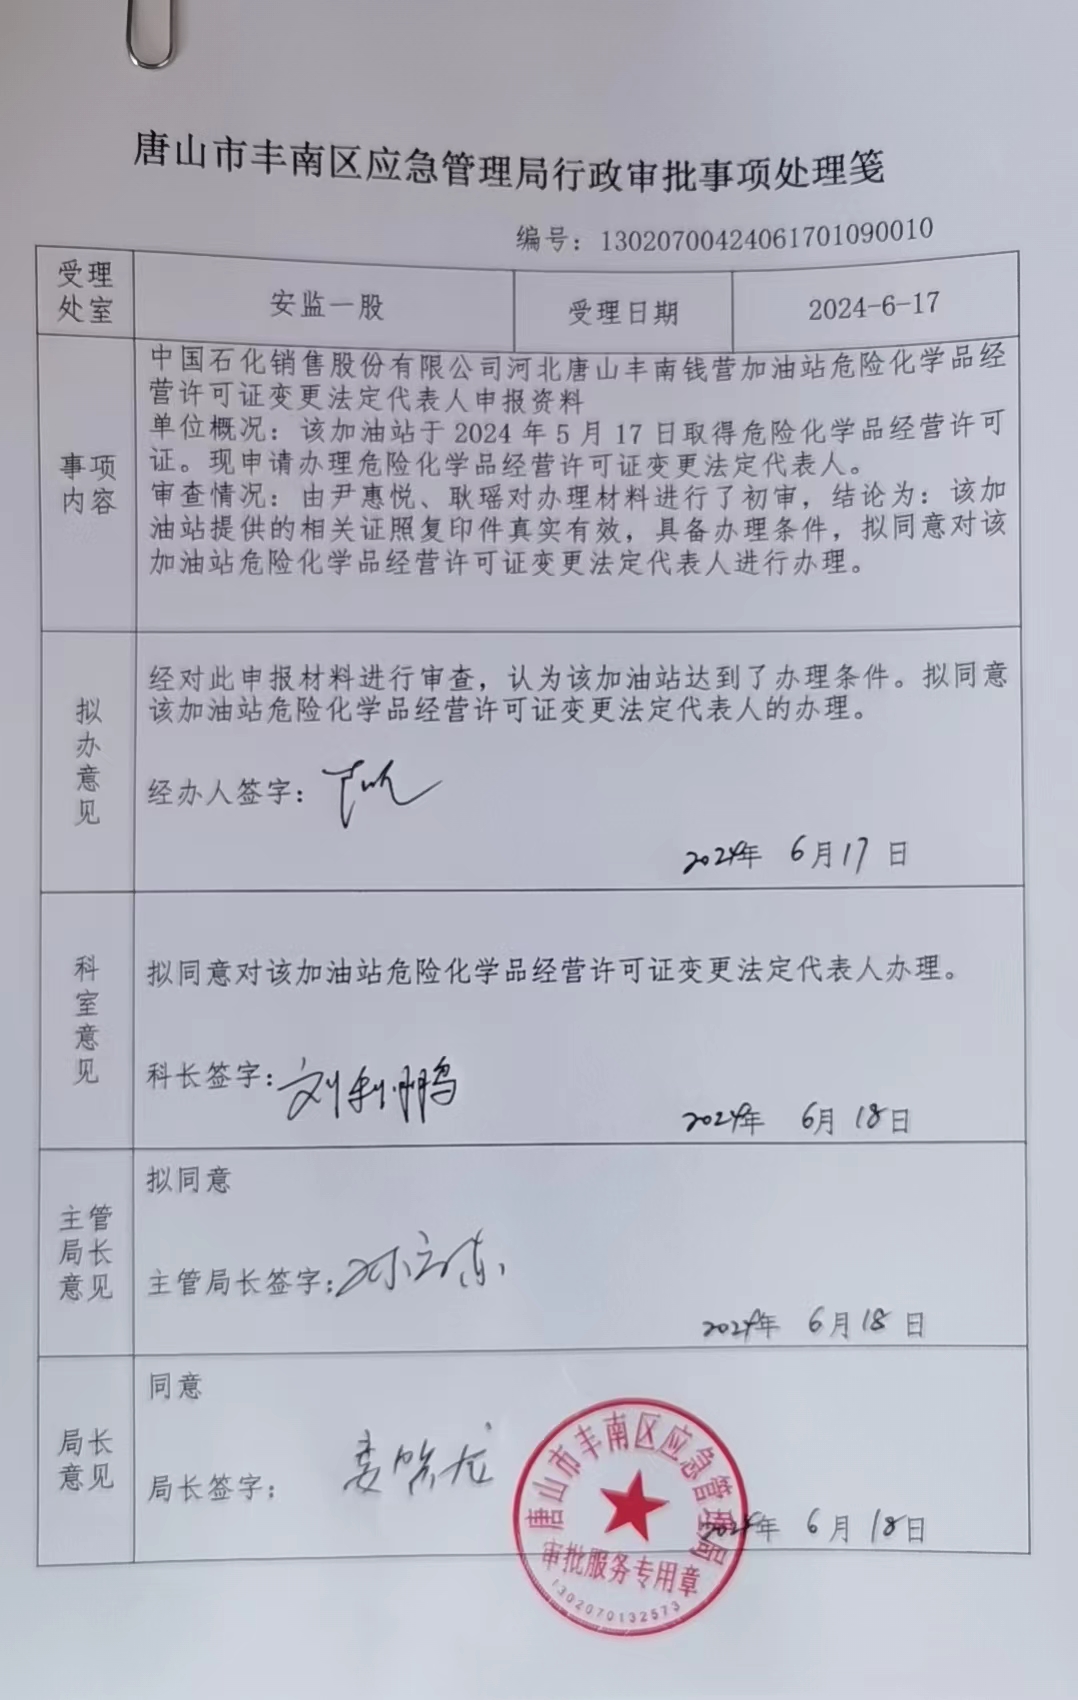 唐山市丰南区应急管理局行政审批事项处理笺
编号：13020700424061701090010
受理
处室
安监一股
受理日期
2024-6-17
事项
内容
中国石化销售股份有限公司河北唐山丰南钱营加油站危险化学品经
营许可证变更法定代表人申报资料
单位概况：该加油站于 2024 年 5 月 17 日取得危险化学品经营许可
证。现申请办理危险化学品经营许可证变更法定代表人。
审查情况：由尹惠悦、耿瑶对办理材料进行了初审，结论为：该加
油站提供的相关证照复印件真实有效，具备办理条件，拟同意对该
加油站危险化学品经营许可证变更法定代表人进行办理。
拟
办
意
见
经对此申报材料进行审查，认为该加油站达到了办理条件。拟同意
该加油站危险化学品经营许可证变更法定代表人的办理。
经办人签字：
2024年 6月17日
科
室
意
见
拟同意对该加油站危险化学品经营许可证变更法定代表人办理。
科长签字：刘利鹏
2024年 6月18日
主管
局长
意见
拟同意
主管局长签字：
2024年 6月18日
局长
意见
同意
局长签字：
2024年 6月18日
唐山市丰南区应急管理局
审批服务专用章
1302070132573